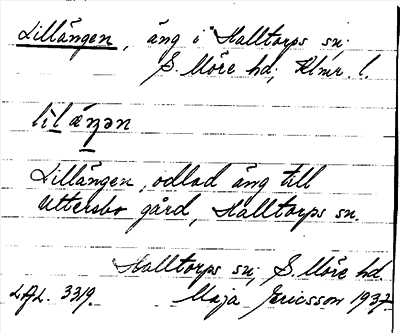 Lillängen, äng i Halltorps sn.
S. Möre hd, Klmr. l.
lilæŋən
Lillängen, odlad äng till
Uttersbo gård, Halltorps sn.
Halltorps sn, S. Möre hd.
LAL. 3319. Maja Ericsson 1937